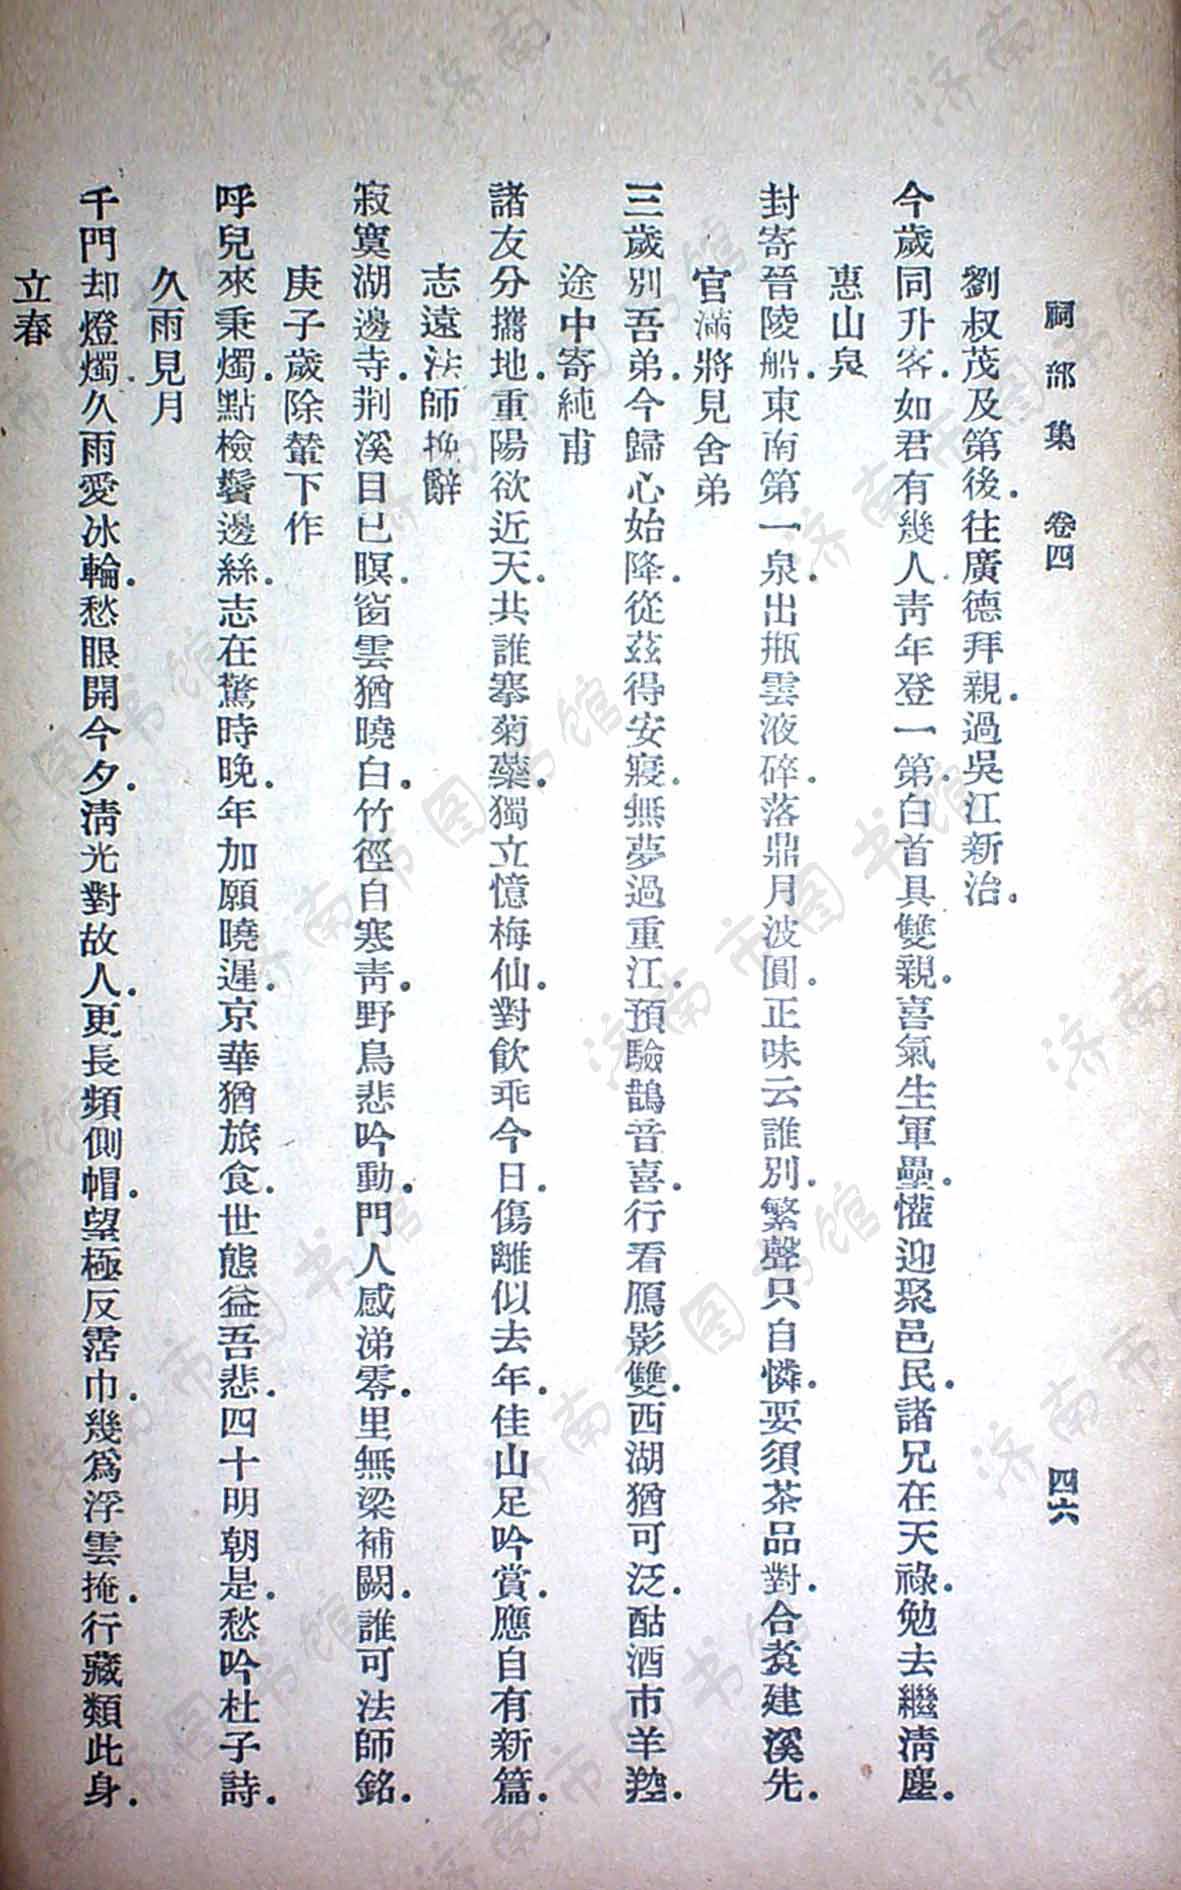 祠部集　卷四　四六
劉叔茂及第後．往廣德拜親．過吳江新治．
今歲同升客．如君有幾人．靑年登一第．白首具雙親．喜氣生軍壘．懽迎聚邑民．諸兄在天祿．勉去繼淸塵．
惠山泉
封寄晉陵船．東南第一泉．出瓶雲液碎．落鼎月波圓．正味云誰別．繁聲只自憐．要須茶品對．合煑建溪先．
官滿將見舍弟
三歲別吾弟．今歸心始降．從茲得安寢．無夢過重江．預驗鵲音喜．行看鴈影雙．西湖猶可泛．酤酒市羊羫．
途中寄純甫
諸友分攜地．重陽欲近天．共誰搴菊蘂．獨立憶梅仙．對飮乖今日．傷離似去年．佳山足吟賞．應自有新篇．
志遠法師挽辭
寂寞湖邊寺．荆溪目已瞑．窗雲猶曉白．竹徑自寒靑．野鳥悲吟動．門人感涕零．里無梁補闕．誰可法師銘．
庚子歲除輦下作
呼兒來秉燭．點檢鬢邊絲．志在驚時晚．年加願曉遲．京華猶旅食．世態益吾悲．四十明朝是．愁吟杜子詩．
久雨見月
千門却燈燭．久雨愛冰輪．愁眼開今夕．淸光對故人．更長頻側帽．望極反霑巾．幾爲浮雲掩．行藏類此身．
立春